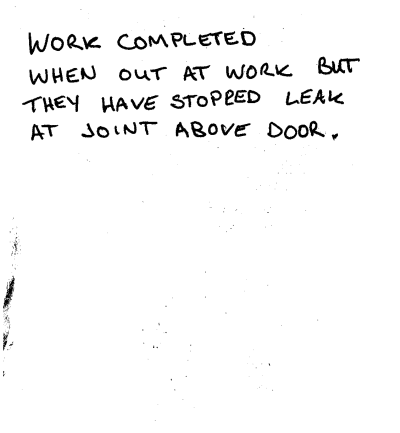 WORK COMPLETED
WHEN OUT AT WORK BUT
THEY HAVE STOPPED LEAK
AT JOINT ABOVE DOOR.